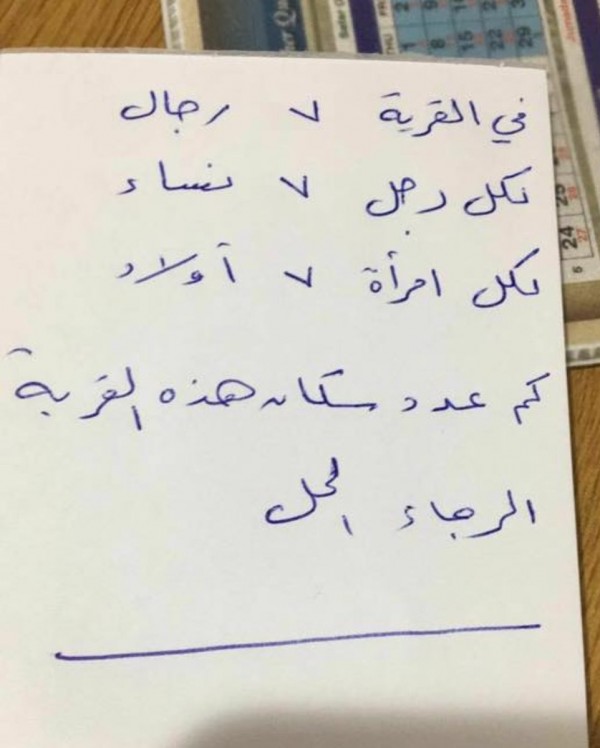 في القرية ٧ رجال
لكل رجل ٧ نساء
لكل امرأة ٧ أولاد
كم عدد سكان هذه القرية
الرجاء الحل